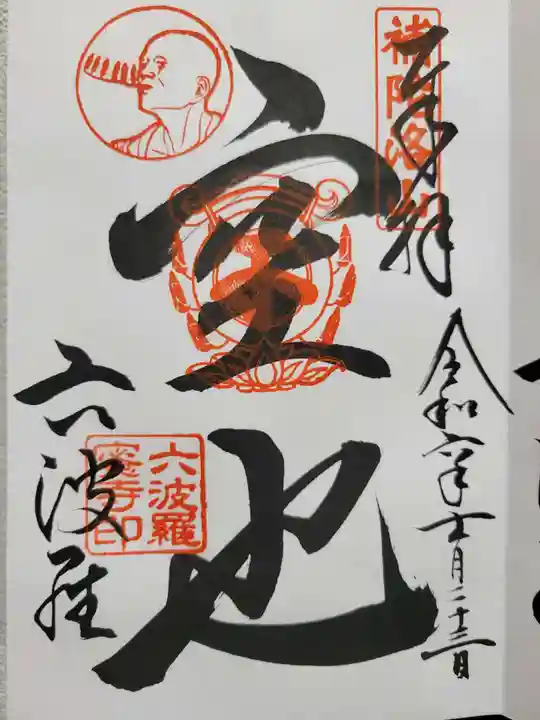 奉拝
補陀洛山
令和六年十一月二十三日
空也
六波羅
六波羅
蜜寺印